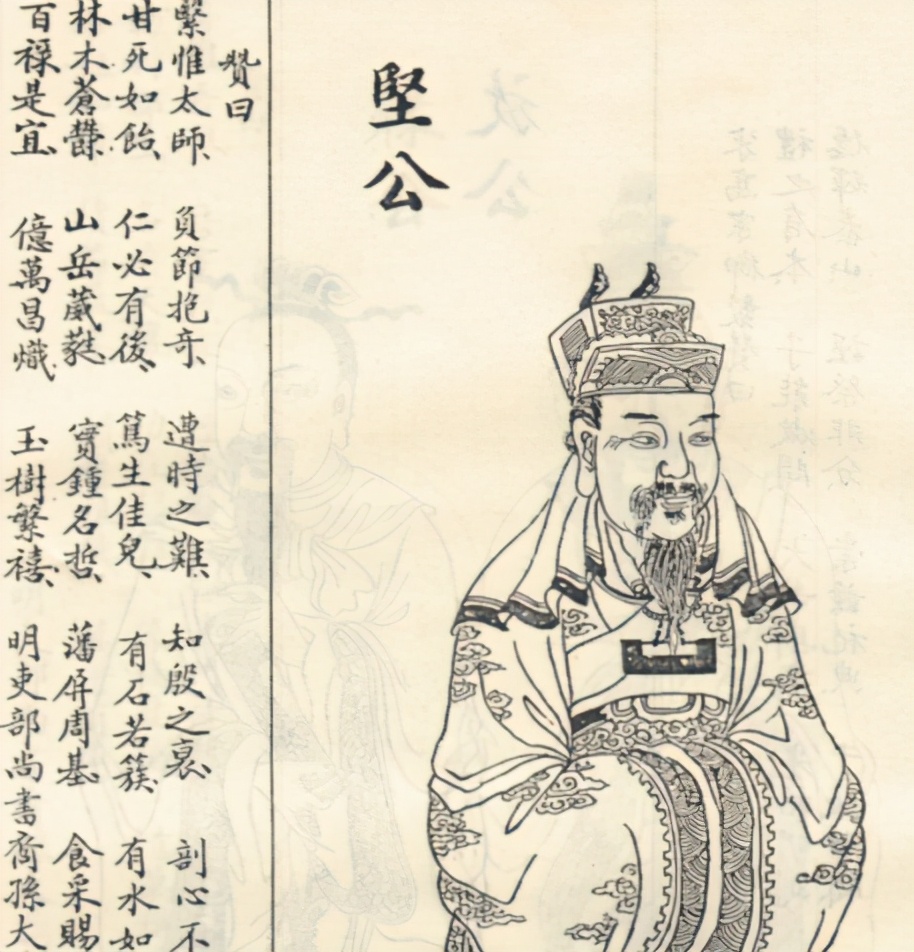 堅公
贊曰
繄惟太師、負節抱奇、遭時之難、知殷之衰、剖心不
甘死如飴、仁必有後、篤生佳兒、有石若簇、有水如
林木蒼欝、山岳葳蕤、實鍾名哲、藩屏周基、食采賜
百祿是宜、億萬昌熾、玉樹繁禧、明吏部尚書裔孫大